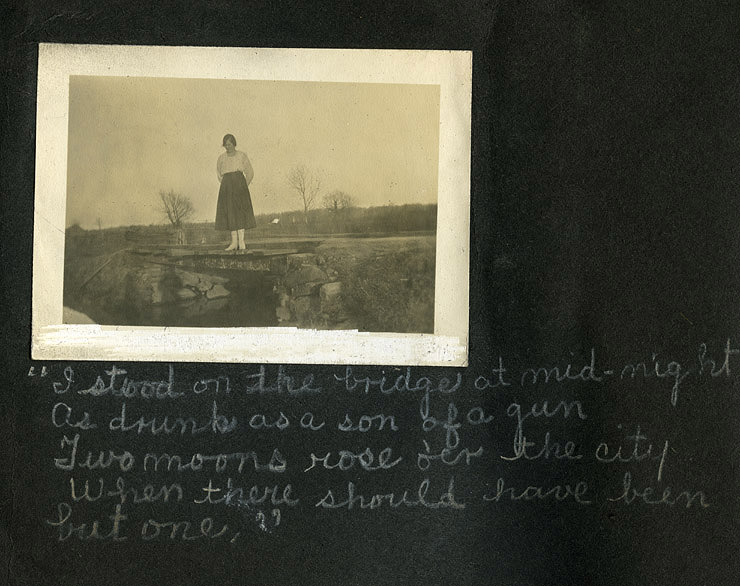 "I stood on the bridge at mid-night
As drunk as a son of a gun
Two moons rose o'er the city
When there should have been
but one,"